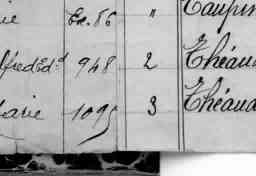 ue Ex.86 " Taupin
lfred Ed.d 948 2 Théaud
Marie 1095 3 Théaud